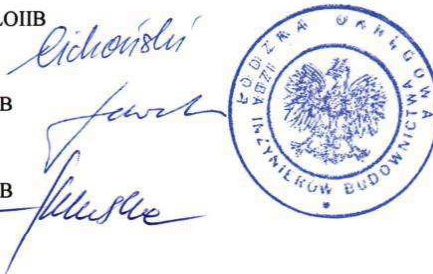 ŁOIIB
Cichoński
B
B
ŁÓDZKA OKRĘGOWA
IZBA INŻYNIERÓW BUDOWNICTWA